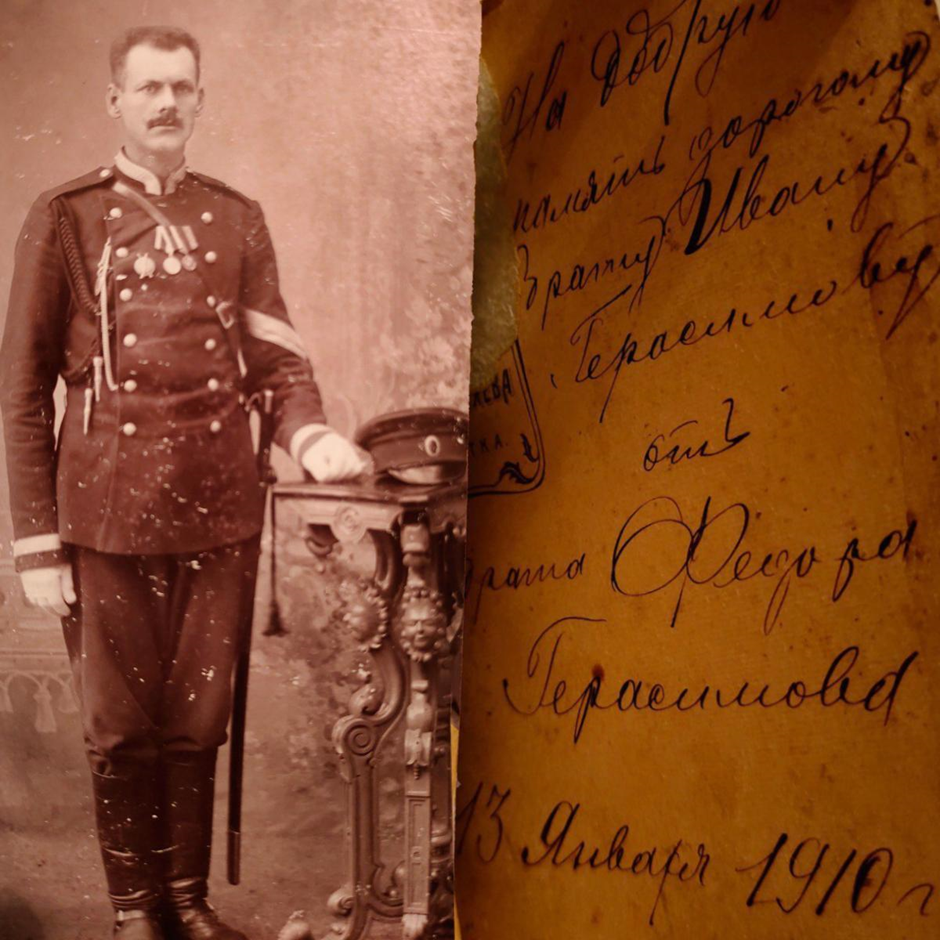 На добрую
память дорогому
Брату Ивану
Герасимову
отъ
брата Федора
Герасимова
13 Января 1910 г